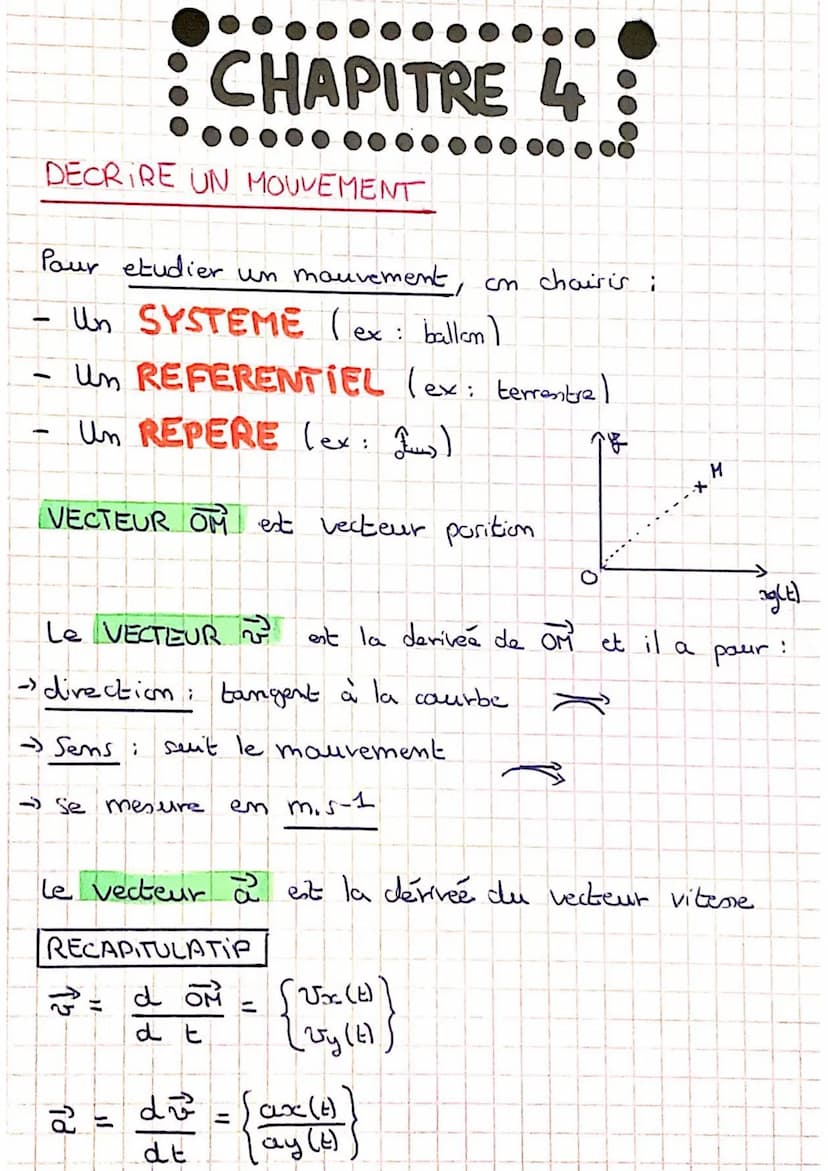 CHAPITRE 4
DECRIRE UN MOUVEMENT
Pour etudier un mouvement, on choisis :
- Un SYSTEME (ex : ballon)
- Un REFERENTIEL (ex : terrestre)
- Un REPERE (ex : )
M
VECTEUR OM⃗ est vecteur position
O
Le VECTEUR v⃗ est la deriveé de OM⃗ et il a pour :
→ direction : tangent à la courbe
→ Sens : suit le mouvement
→ se mesure en m.s-1
Le vecteur a⃗ est la dériveé du vecteur vitesse
RECAPITULATIF
v⃗ = d OM⃗ / d t = { vx(t) vy(t) }
a⃗ = dv⃗ / dt = { ax(t) / ay(t) }